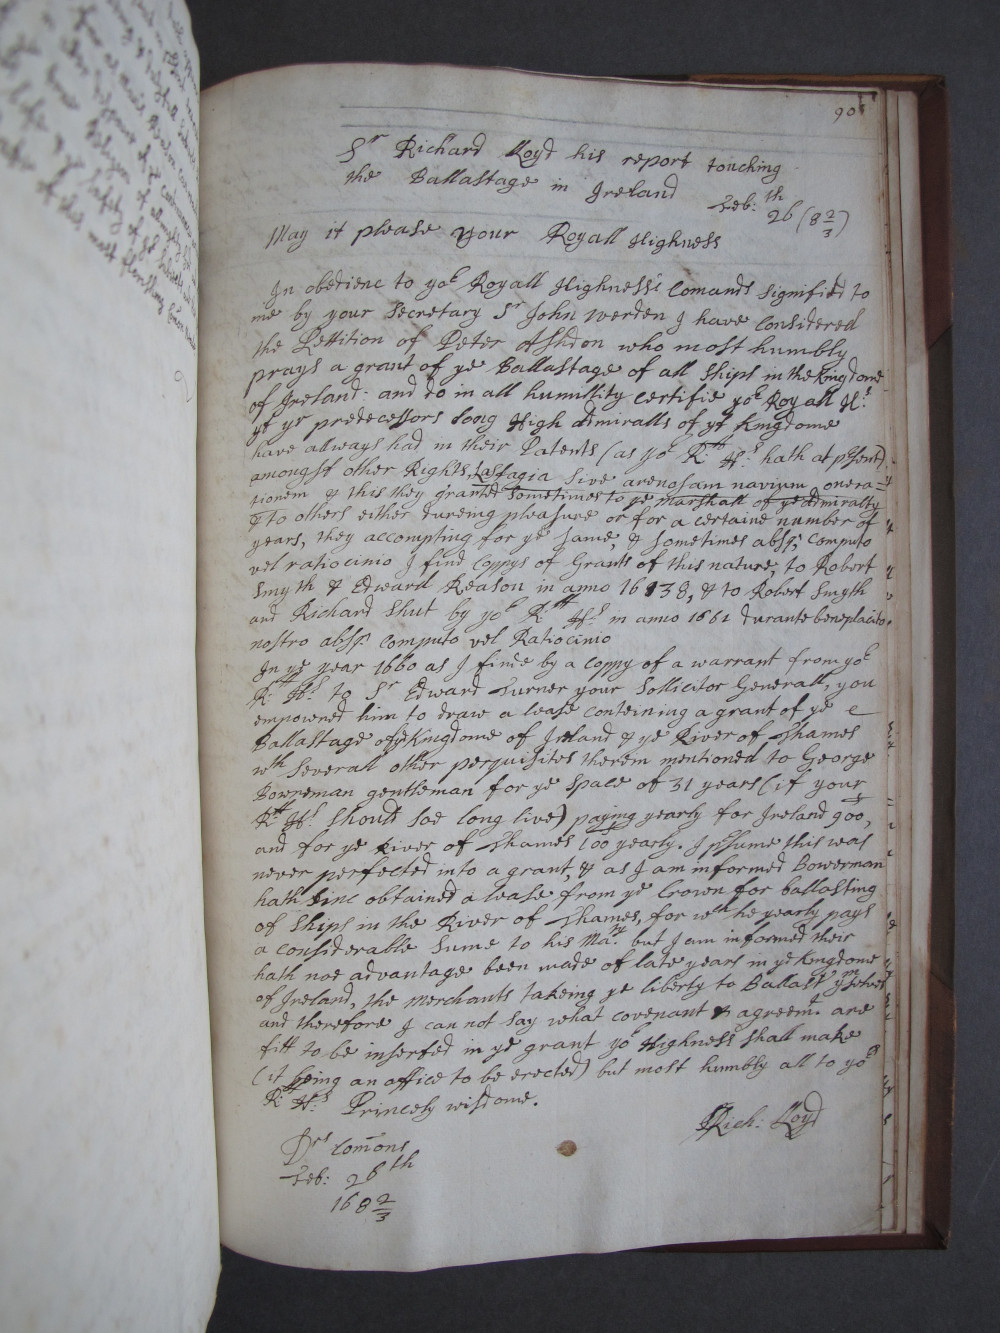 90
Sr Richard Lloyd his report touching
the Ballastage in Ireland
Feb: 26th (8 2/3)
May it please your Royall Highness
In obedienc to yor Royall Highness's Comands signified to
me by your Secretary Sr John Werden I have considered
the Pettition of Peter Ashdon who most humbly
prays a grant of ye Ballastage of all ships in the kingdome
of Ireland: and do in all humillity certifie yor Royall Hs
yt yr predecessors Long High Admiralls of ye Kingdome
have allways had in their Patents (as yor R:ll H:s hath at psent)
amongst other Rights, Lastagia sive arenosam navium onera=
tionem & this they granted sometimes to ye Marshall of ye Admiralty
& to others either dureing pleasure or for a certaine number of
years, they accompting for ye same, & sometimes absq; Computo
vel ratiocinio I find Coppys of Grants of this nature, to Robert
Smyth & Edward Reason in anno 1638, & to Robert Smyth
and Richard Shut by yor Rll Hs in anno 1661 durante beneplacito
nostro absq; Computo vel Ratiocinio
In ye year 1660 as I finde by a Coppy of a warrant from yor
R:ll Hs to Sr Edward Turner your Sollicitor Generall, you
empowred him to draw a lease conteining a grant of ye
Ballastage of ye Kingdome of Ireland & ye River of Thames
wth severall other perquisites therein mentioned to George
Bowreman gentleman for ye space of 31 years (if your
R:ll Hs should soe long live) paying yearly for Ireland 900,
and for ye River of Thames 100 yearly. I psume this was
never perfected into a grant, & as I am informed Bowerman
hath sinc obtained a lease from ye Crown for ballasting
of ships in the River of Thames, for wch he yearly pays
a considerable sume to his Maty: but I am informed their
hath noe advantage been made of late years in ye Kingdome
of Ireland, the Merchants takeing ye liberty to Ballast ymselves
and therefore I can not say what covenant & agreemt are
fitt to be inserted in ye grant yor Highness shall make
(it being an office to be erected) but most humbly all to yor
R:ll H:s Princely wisdome.
Rich: Lloyd
Drs Comons
Feb: 26th
168 2/3